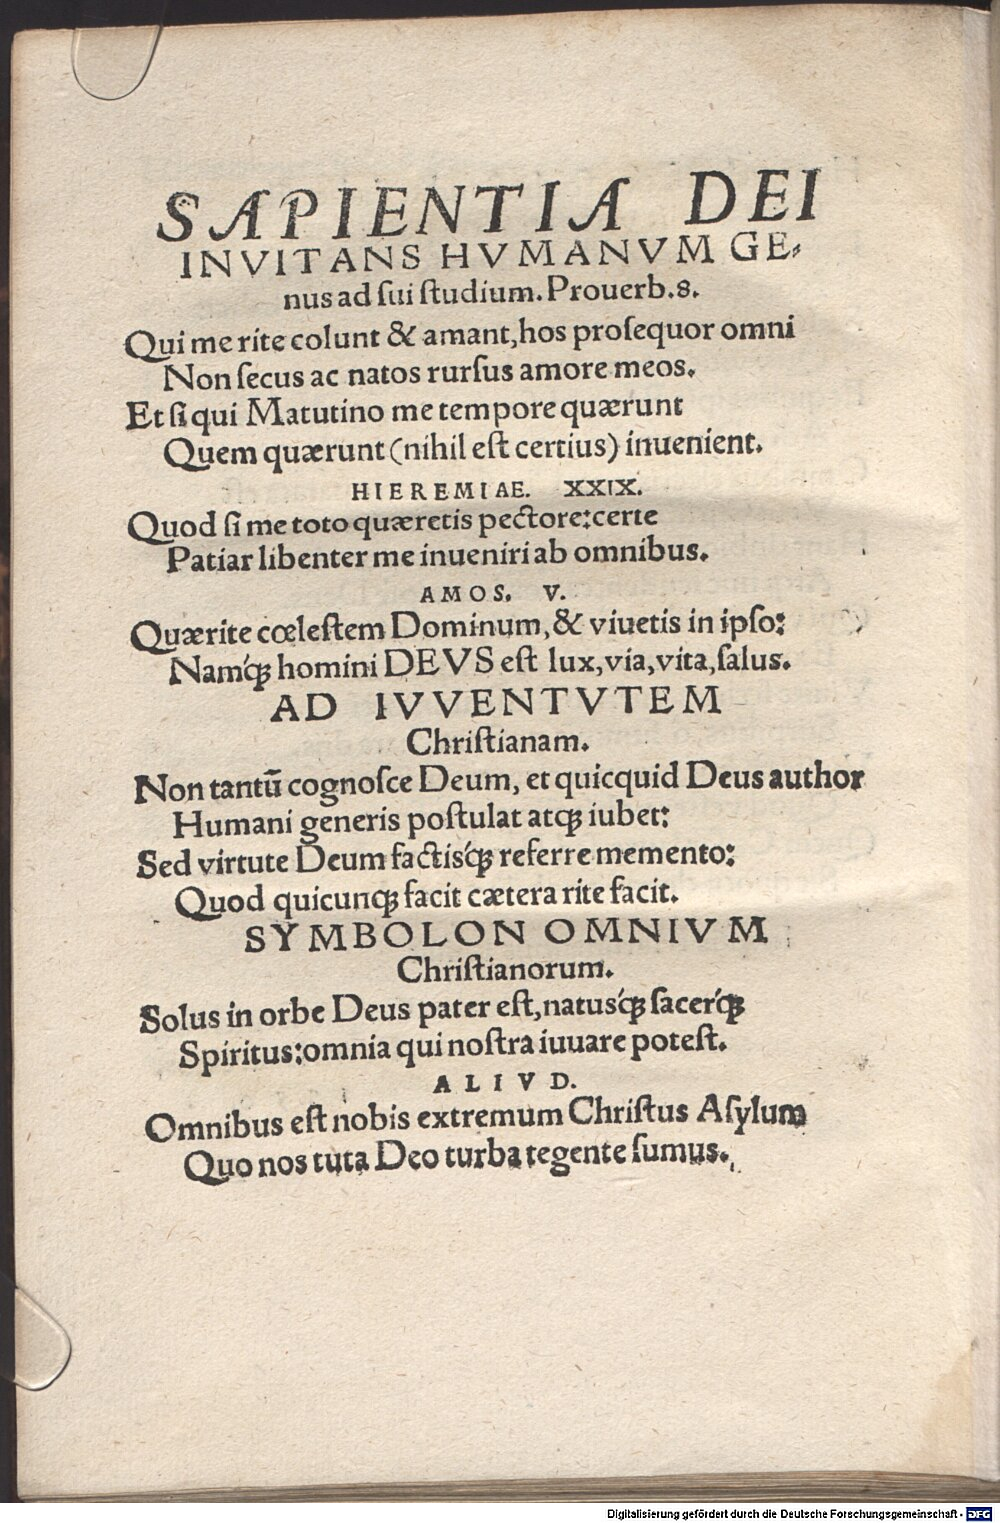 SAPIENTIA DEI
INVITANS HVMANVM GE-
nus ad ſui ſtudium. Prouerb. 8.
Qui me rite colunt & amant, hos proſequor omni
Non ſecus ac natos rurſus amore meos.
Et ſi qui Matutino me tempore quærunt
Quem quærunt (nihil eſt certius) inuenient.
HIEREMIAE. XXIX.
Quod ſi me toto quæretis pectore: certe
Patiar libenter me inueniri ab omnibus.
AMOS. V.
Quærite cœleſtem Dominum, & viuetis in ipſo:
Namq́ꝫ homini DEVS eſt lux, via, vita, ſalus.
AD IVVENTVTEM
Chriſtianam.
Non tantū cognoſce Deum, et quicquid Deus author
Humani generis poſtulat atqꝫ iubet:
Sed virtute Deum factisq́ꝫ referre memento:
Quod quicunqꝫ facit cætera rite facit.
SYMBOLON OMNIVM
Chriſtianorum.
Solus in orbe Deus pater eſt, natusq́ꝫ ſacerq́ꝫ
Spiritus: omnia qui noſtra iuuare poteſt.
ALIVD.
Omnibus eſt nobis extremum Chriſtus Aſylum
Quo nos tuta Deo turba tegente ſumus.
Digitalisierung gefördert durch die Deutsche Forschungsgemeinschaft - DFG